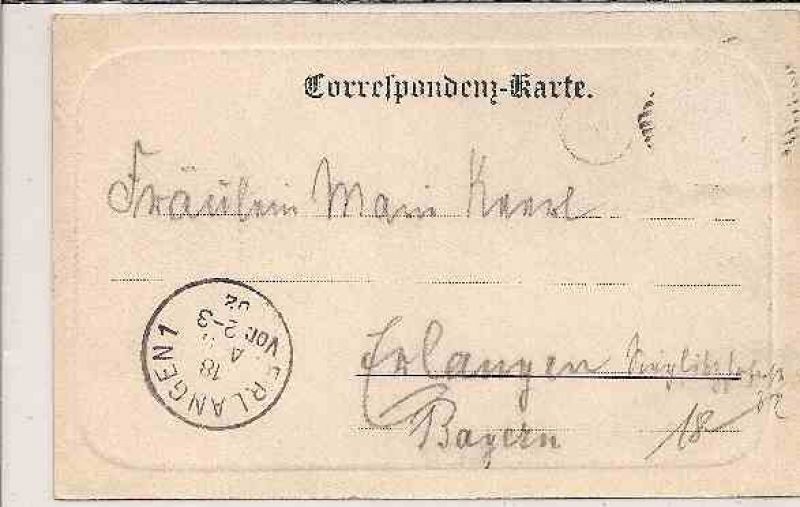 Correspondenz-Karte.
Fräulein Marie
Erlangen
Bayern 18
ERLANGEN 1
18
VOR. 2-3
02